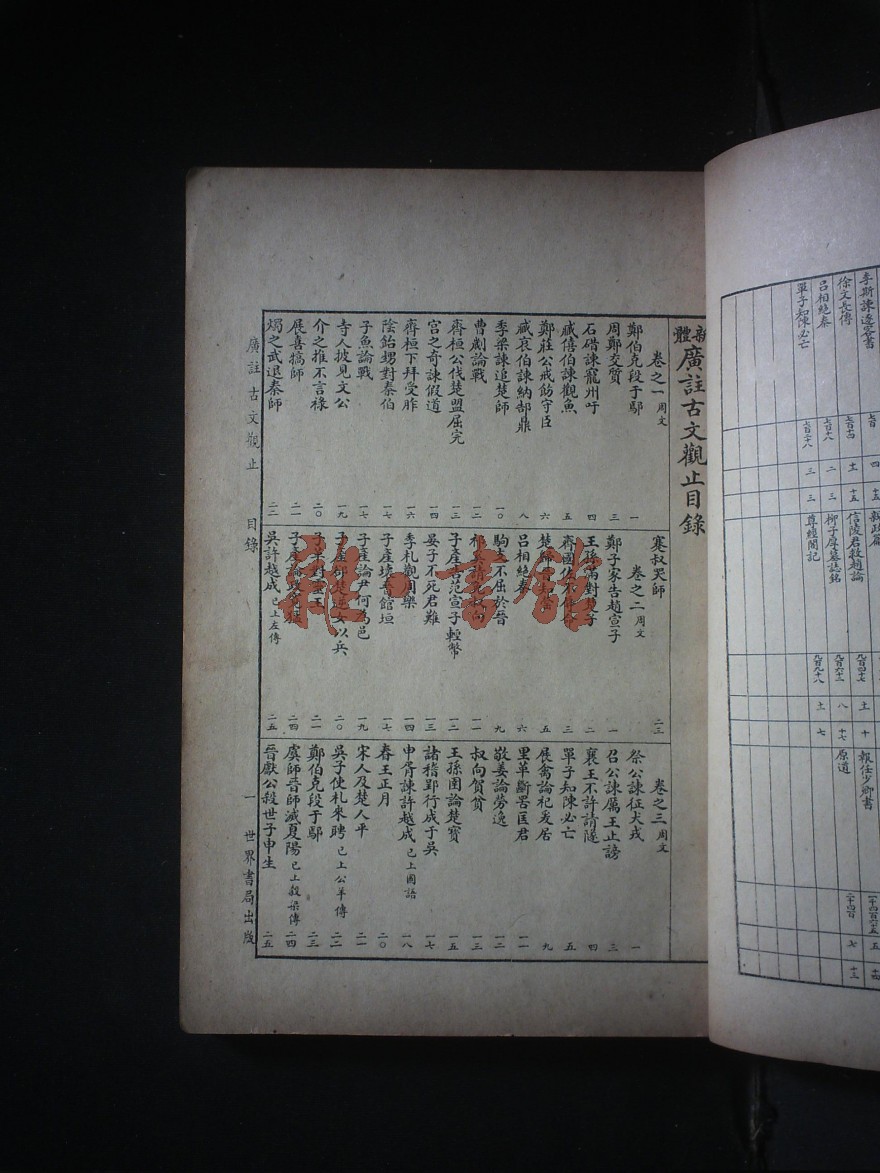 李斯諫逐客書 七百 四 十五 
徐文長傳 七百十四 十五
呂相絕秦 七百十八 二 三
單子知陳必亡 七百二十八 三 三
信陵君救趙論 九百四十七
柳子厚墓誌銘 九百六十二 八 十七
尊經閣記 九百九十八 七
報任少卿書 五 十四
原道 二千四百 七 十三
新體廣註古文觀止目錄
卷之一 周文
鄭伯克段于鄢 一
周鄭交質 三
石碏諫寵州吁 四
臧僖伯諫觀魚 五
鄭莊公戒飭守臣 六
臧哀伯諫納郜鼎 八
季梁諫追楚師 一〇
曹劌論戰 一二
齊桓公伐楚盟屈完 一三
宮之奇諫假道 一四
齊桓下拜受胙 一六
陰飴甥對秦伯 一七
子魚論戰 一七
寺人披見文公 一九
介之推不言祿 二〇
展喜犒師 二一
燭之武退秦師 二二
蹇叔哭師 二三
卷之二 周文
鄭子家告趙宣子 一
王孫滿對楚子 二
齊國佐不辱命 三
楚歸晉知罃 五
呂相絕秦 六
駒支不屈於晉 九
祁奚請免叔向 一一
子產告范宣子輕幣 一二
晏子不死君難 一三
季札觀周樂 一四
子產壞晉館垣 一七
子產論尹何為邑 一九
子產卻楚逆女以兵 二〇
子革對靈王 二一
子產論政寬猛 二四
吳許越成 已上左傳 二五
卷之三 周文
祭公諫征犬戎 一
召公諫厲王止謗 三
襄王不許請隧 四
單子知陳必亡 五
展禽論祀爰居 九
里革斷罟匡君 一一
敬姜論勞逸 一二
叔向賀貧 一三
王孫圉論楚寶 一五
諸稽郢行成于吳 一七
申胥諫許越成 已上國語 一八
春王正月 二〇
宋人及楚人平 二一
吳子使札來聘 已上公羊傳 二二
鄭伯克段于鄢 二三
虞師晉師滅夏陽 已上穀梁傳 二四
晉獻公殺世子申生 二五
廣註古文觀止 目錄 一 世界書局出版
雅·書館